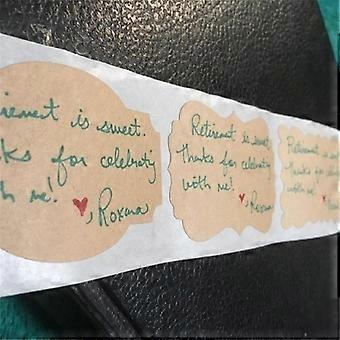 irement is sweet.
ks for celebrating
h me!
, Roxana
Retirement is sweet.
Thanks for celebrating
with me!
, Roxana
Retirement is
Thanks for celebrati
with me!